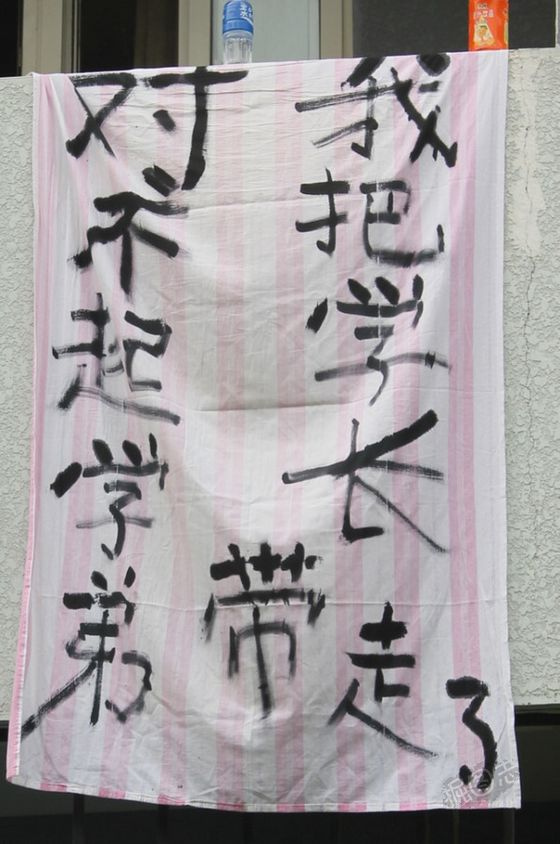 对不起学弟
我把学长带走了